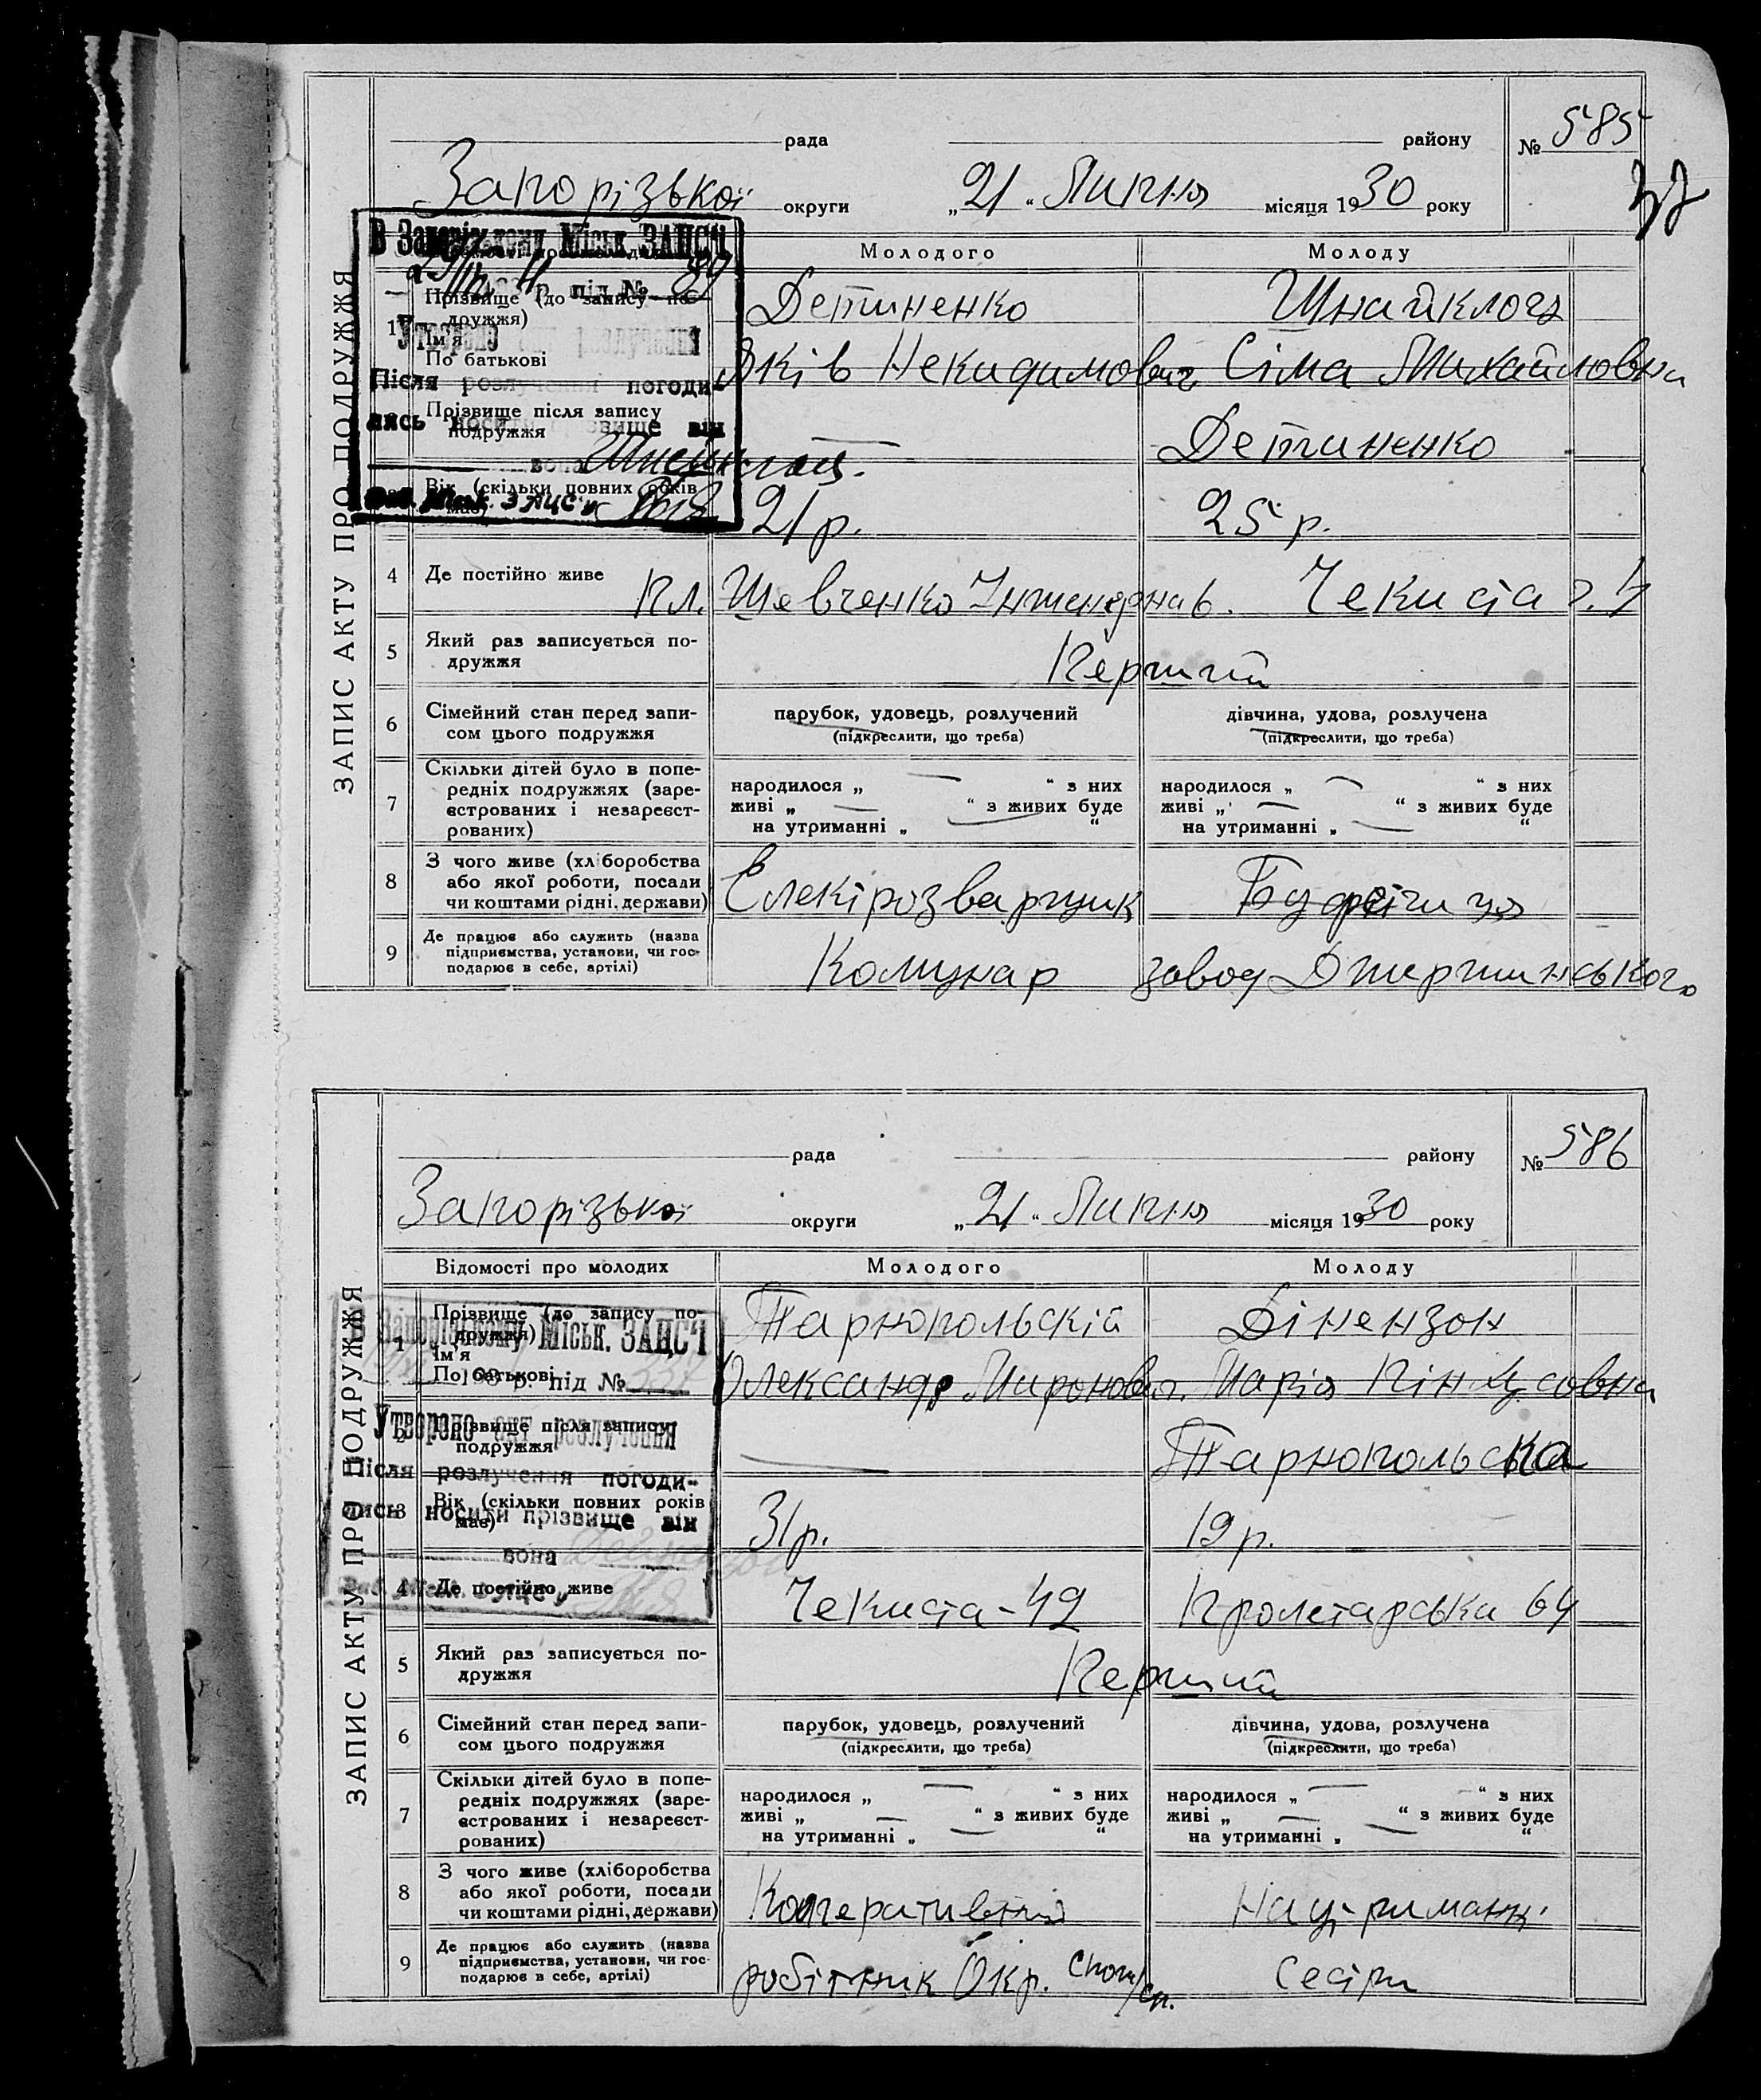 ЗАПИС АКТУ ПРО ПОДРУЖЖЯ
рада району № 585
Запорізької округи „21“ Липня місяця 1930 року
37
Молодого Молоду
В Запорізькому Міськ. ЗАПСЧ
р. під № 89
Утворено акт розлучення
Після розлучення погоди-
лись носити прізвище він
вона
Зав. Міськ. ЗАПС'у
1 Прізвище (до запису по-
дружжя)
Ім'я
По батькові
Детиненко Шнайклоц
Яків Некидимович Сіма Михайловна
Прізвище після запису
подружжя
— Детиненко
Вік (скільки повних років
має)
21 р. 25 р.
4 Де постійно живе
Пл. Шевченко Чекиста
5 Який раз записується по-
дружжя
Перший
6 Сімейний стан перед запи-
сом цього подружжя
парубок, удовець, розлучений дівчина, удова, розлучена
(підкреслити, що треба) (підкреслити, що треба)
7 Скільки дітей було в попе-
редніх подружжях (заре-
єстрованих і незареєст-
рованих)
народилося „ — “ з них народилося „ — “ з них
живі „ — “ з живих буде живі „ — “ з живих буде
на утриманні „ — “ на утриманні „ — “
8 З чого живе (хліборобства
або якої роботи, посади
чи коштами рідні, держави)
Електрозварщик
9 Де працює або служить (назва
підприємства, установи, чи гос-
подарює в себе, артілі)
Комунар завод Джержинського
ЗАПИС АКТУ ПРО ПОДРУЖЖЯ
рада району № 586
Запорізької округи „21“ Липня місяця 1930 року
Відомості про молодих Молодого Молоду
Запорізькому Міськ. ЗАПСЧ
193 р. під № 337
Утворено акт розлучення
Після розлучення погоди-
лись носити прізвище він
вона
1 Прізвище (до запису по-
дружжя)
Ім'я
По батькові
Тарнопольскій Дінензон
Олександр Миронович Марія Пінхусовна
2 Прізвище після запису
подружжя
— Тарнопольська
3 Вік (скільки повних років
має)
31 р. 19 р.
4 Де постійно живе
Чекиста - 42 Пролетарська 64
5 Який раз записується по-
дружжя
Перший
6 Сімейний стан перед запи-
сом цього подружжя
парубок, удовець, розлучений дівчина, удова, розлучена
(підкреслити, що треба) (підкреслити, що треба)
7 Скільки дітей було в попе-
редніх подружжях (заре-
єстрованих і незареєст-
рованих)
народилося „ — “ з них народилося „ — “ з них
живі „ — “ з живих буде живі „ — “ з живих буде
на утриманні „ — “ на утриманні „ — “
8 З чого живе (хліборобства
або якої роботи, посади
чи коштами рідні, держави)
Кооперативний На утриманн.
9 Де працює або служить (назва
підприємства, установи, чи гос-
подарює в себе, артілі)
робітник Окр. Спож/сп. Сестри